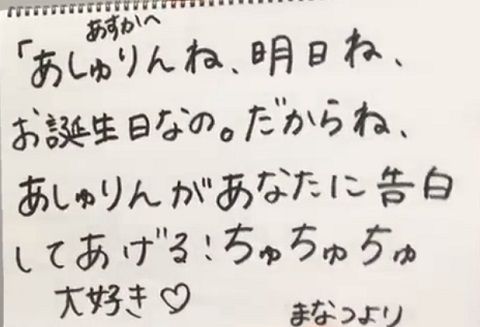 あすかへ
「あしゅりんね、明日ね、
お誕生日なの。だからね、
あしゅりんがあなたに告白
してあげる！ちゅちゅちゅ
大好き♡
まなつより